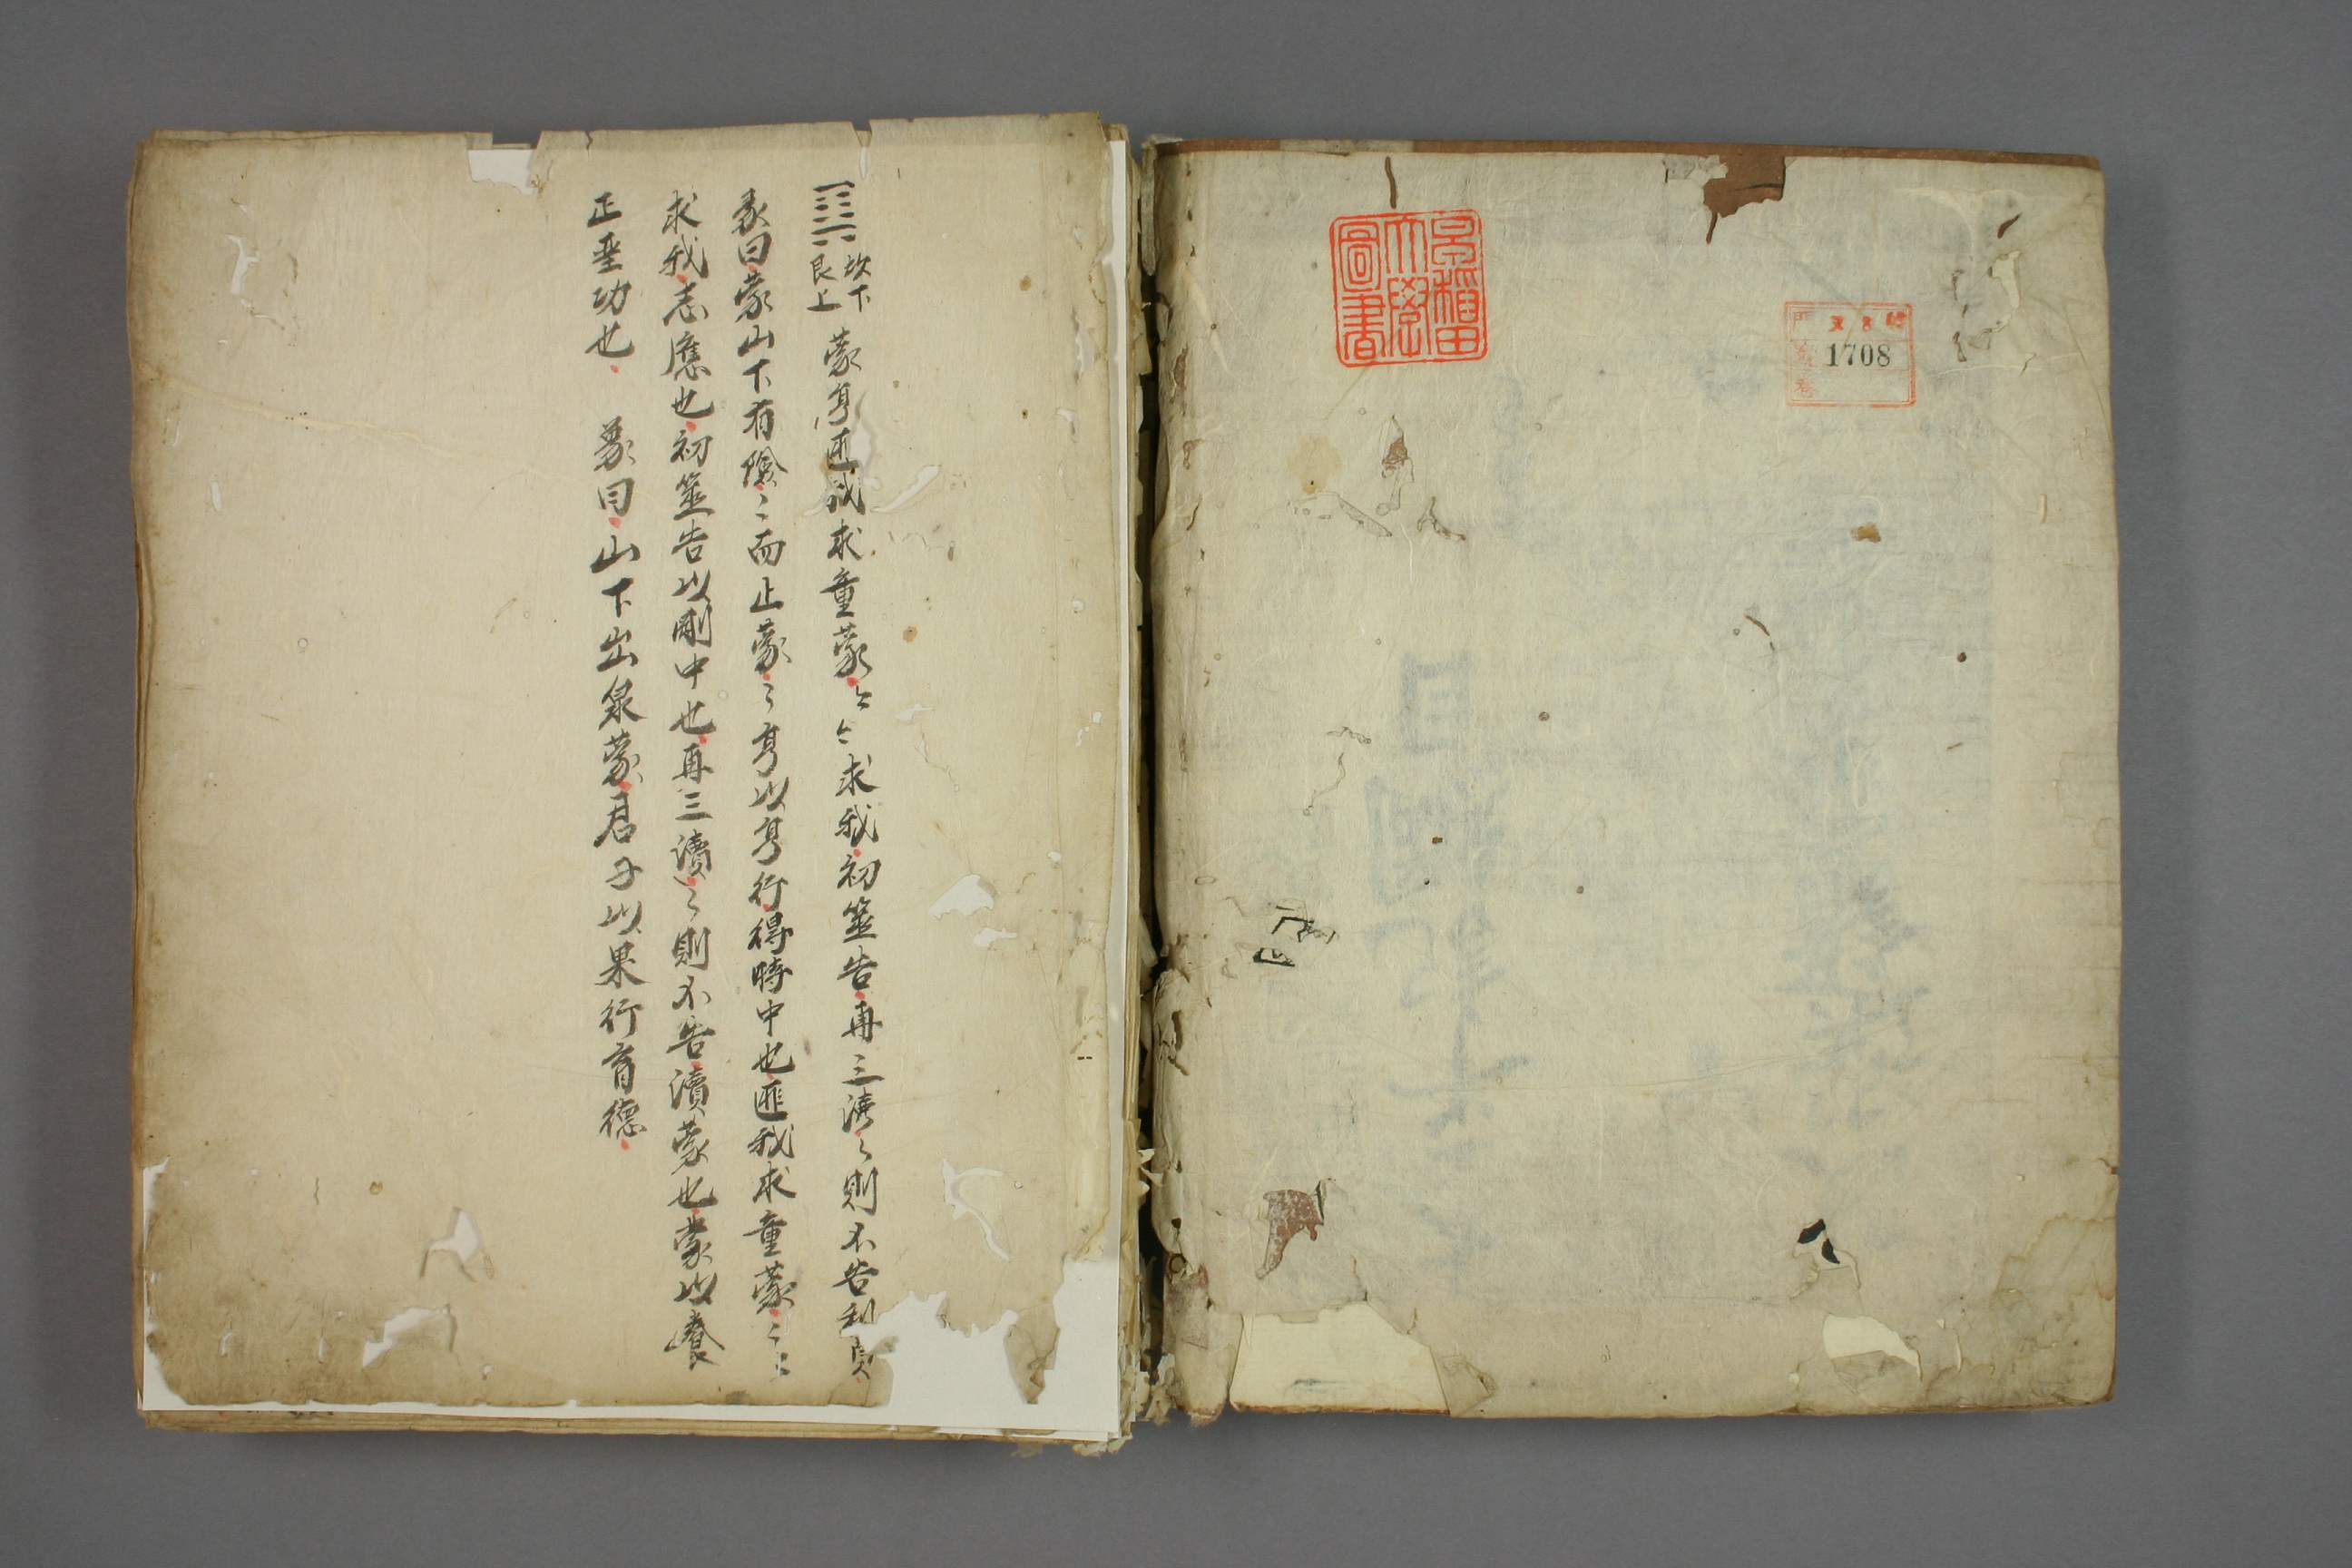 早稲田
大學
圖書
1708
坎下
艮上
蒙亨匪我求童蒙〻〻求我初筮告再三瀆〻則不告利貞
彖曰蒙山下有險〻而止蒙〻亨以亨行得時中也匪我求童蒙〻〻
求我志應也初筮告以剛中也再三瀆〻則不告瀆蒙也蒙以養
正聖功也 象曰山下出泉蒙君子以果行育德